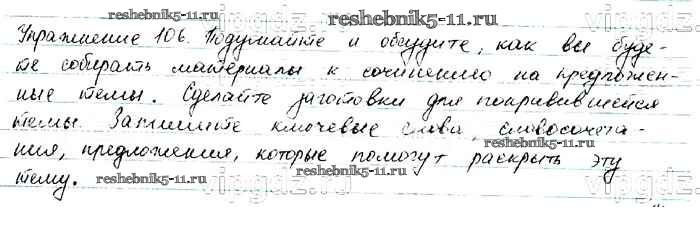 reshebnik5-11.ru
Упражнение 106. Подумайте и обсудите, как вы буде-
те собирать материалы к сочинению на предложен-
ные темы. Сделайте заготовки для понравившейся
темы. Запишите ключевые слова, словосочета-
ния, предложения, которые помогут раскрыть эту
тему.
reshebnik5-11.ru
reshebnik5-11.ru
vipgdz.ru
vipgdz.ru
vipgdz.ru